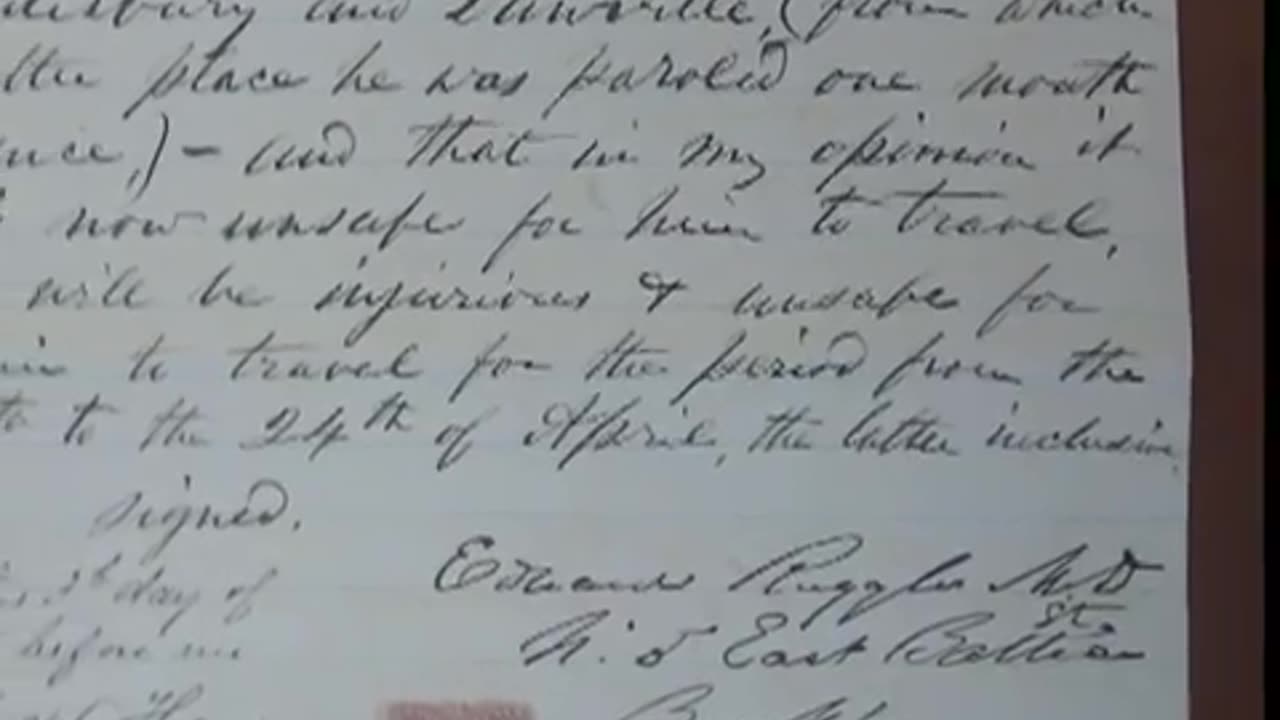 and Danville, (from which
place he was paroled one month
and that in my opinion it
now unsafe for him to travel,
will be injurious & unsafe for
to travel for the period from the
to the 24th of April, the latter inclusive
signed.
Edward Ruggles M.D
day of
No. 5 East Baltic St.
before me